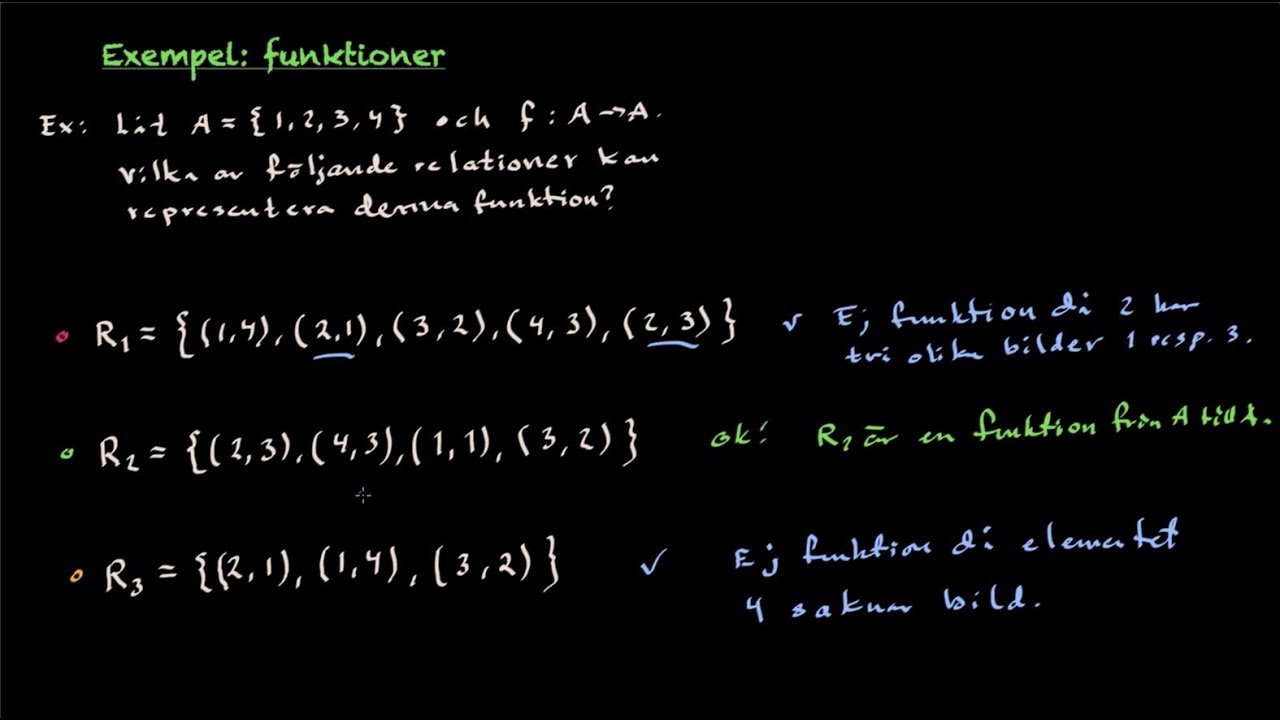 Exempel: funktioner
Ex: Låt A = {1, 2, 3, 4} och f : A → A.
vilka av följande relationer kan
representera denna funktion?
R₁ = {(1,4), (2,1), (3,2), (4,3), (2,3)} ✓ Ej funktion då 2 har
två olika bilder 1 resp. 3.
R₂ = {(2,3), (4,3), (1,1), (3,2)} ok! R₂ är en funktion från A till A.
R₃ = {(2,1), (1,4), (3,2)} ✓ Ej funktion då elementet
4 saknar bild.